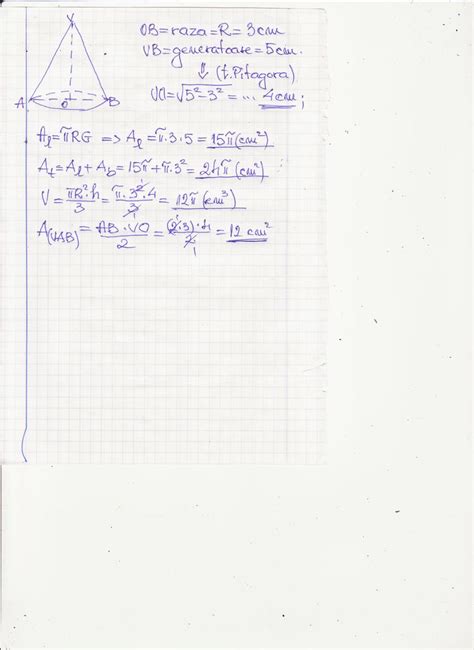 V
A
O
B
OB = raza = R = 3cm
VB = generatoare = 5cm.
⇓ (t. Pitagora)
VO = √5²-3² = ... 4cm ;
Aℓ = πRG => Aℓ = π·3·5 = 15π (cm²)
At = Aℓ + Ab = 15π + π·3² = 24π (cm²)
V = πR²·h/3 = π·3²·4/3 = 12π (cm³)
A(VAB) = AB·VO/2 = (2·3)·4/2 = 12 cm²